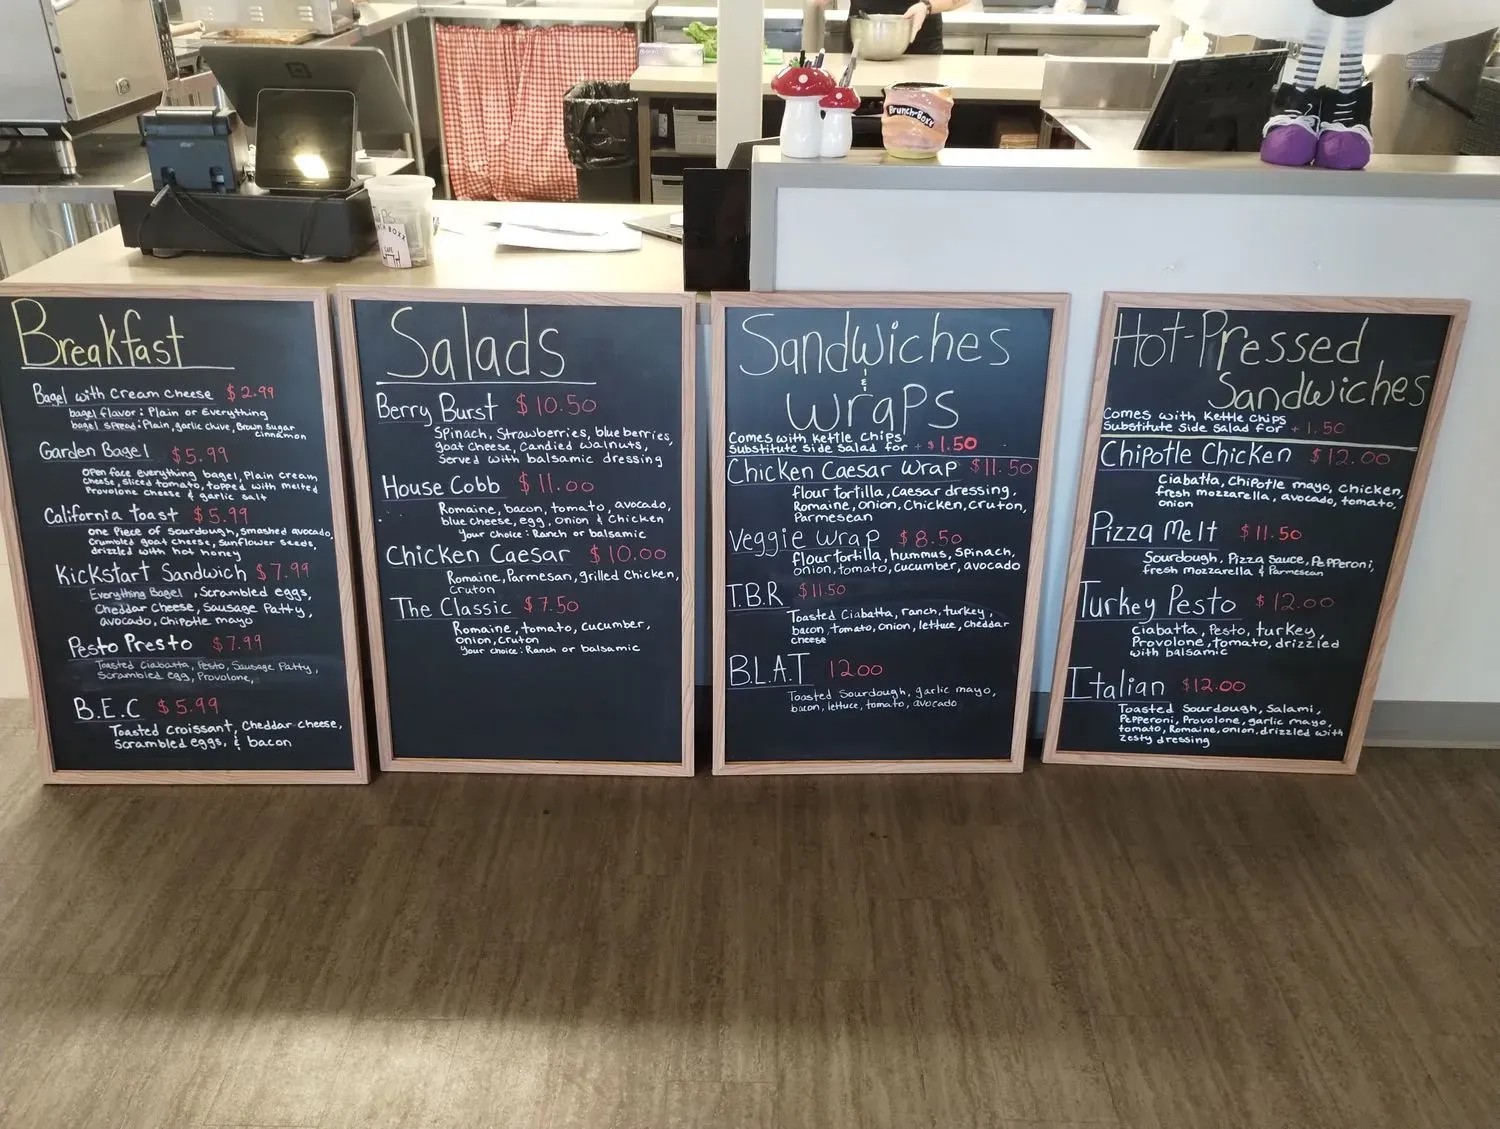 Brunch-Box's
Breakfast
Bagel with cream cheese $2.99
bagel flavor: Plain or Everything
bagel spread: Plain, garlic chive, Brown sugar
cinnamon
Garden Bagel $5.99
open face everything bagel, Plain cream
cheese, sliced tomato, topped with melted
Provolone cheese & garlic salt
California toast $5.99
one Piece of sourdough, smashed avocado,
crumbled goat cheese, sunflower seeds,
drizzled with hot honey
Kickstart Sandwich $7.99
Everything Bagel, scrambled eggs,
cheddar cheese, sausage Patty,
avocado, chipotle mayo
Pesto Presto $7.99
Toasted Ciabatta, Pesto, Sausage Patty,
Scrambled egg, Provolone,
B.E.C $5.99
Toasted croissant, cheddar cheese,
scrambled eggs, & bacon
Salads
Berry Burst $10.50
Spinach, Strawberries, blueberries,
goat cheese, candied walnuts,
served with balsamic dressing
House Cobb $11.00
Romaine, bacon, tomato, avocado,
blue cheese, egg, onion & chicken
your choice: Ranch or balsamic
Chicken Caesar $10.00
Romaine, Parmesan, grilled chicken,
cruton
The Classic $7.50
Romaine, tomato, cucumber,
onion, cruton
your choice: Ranch or balsamic
Sandwiches
&
Wraps
Comes with kettle chips
Substitute side salad for + $1.50
Chicken Caesar Wrap $11.50
flour tortilla, Caesar dressing,
Romaine, onion, chicken, cruton,
Parmesean
Veggie wrap $8.50
flour tortilla, hummus, spinach,
onion, tomato, cucumber, avocado
T.B.R $11.50
Toasted Ciabatta, ranch, turkey,
bacon, tomato, onion, lettuce, cheddar
cheese
B.L.A.T 12.00
Toasted Sourdough, garlic mayo,
bacon, lettuce, tomato, avocado
Hot-Pressed
Sandwiches
Comes with kettle chips
Substitute side salad for + 1.50
Chipotle Chicken $12.00
Ciabatta, Chipotle mayo, chicken,
fresh mozzarella, avocado, tomato,
onion
Pizza Melt $11.50
Sourdough, Pizza sauce, Pepperoni,
fresh mozzarella & Parmesean
Turkey Pesto $12.00
Ciabatta, Pesto, turkey,
Provolone, tomato, drizzled
with balsamic
Italian $12.00
Toasted Sourdough, Salami,
Pepperoni, Provolone, garlic mayo,
tomato, Romaine, onion, drizzled with
zesty dressing